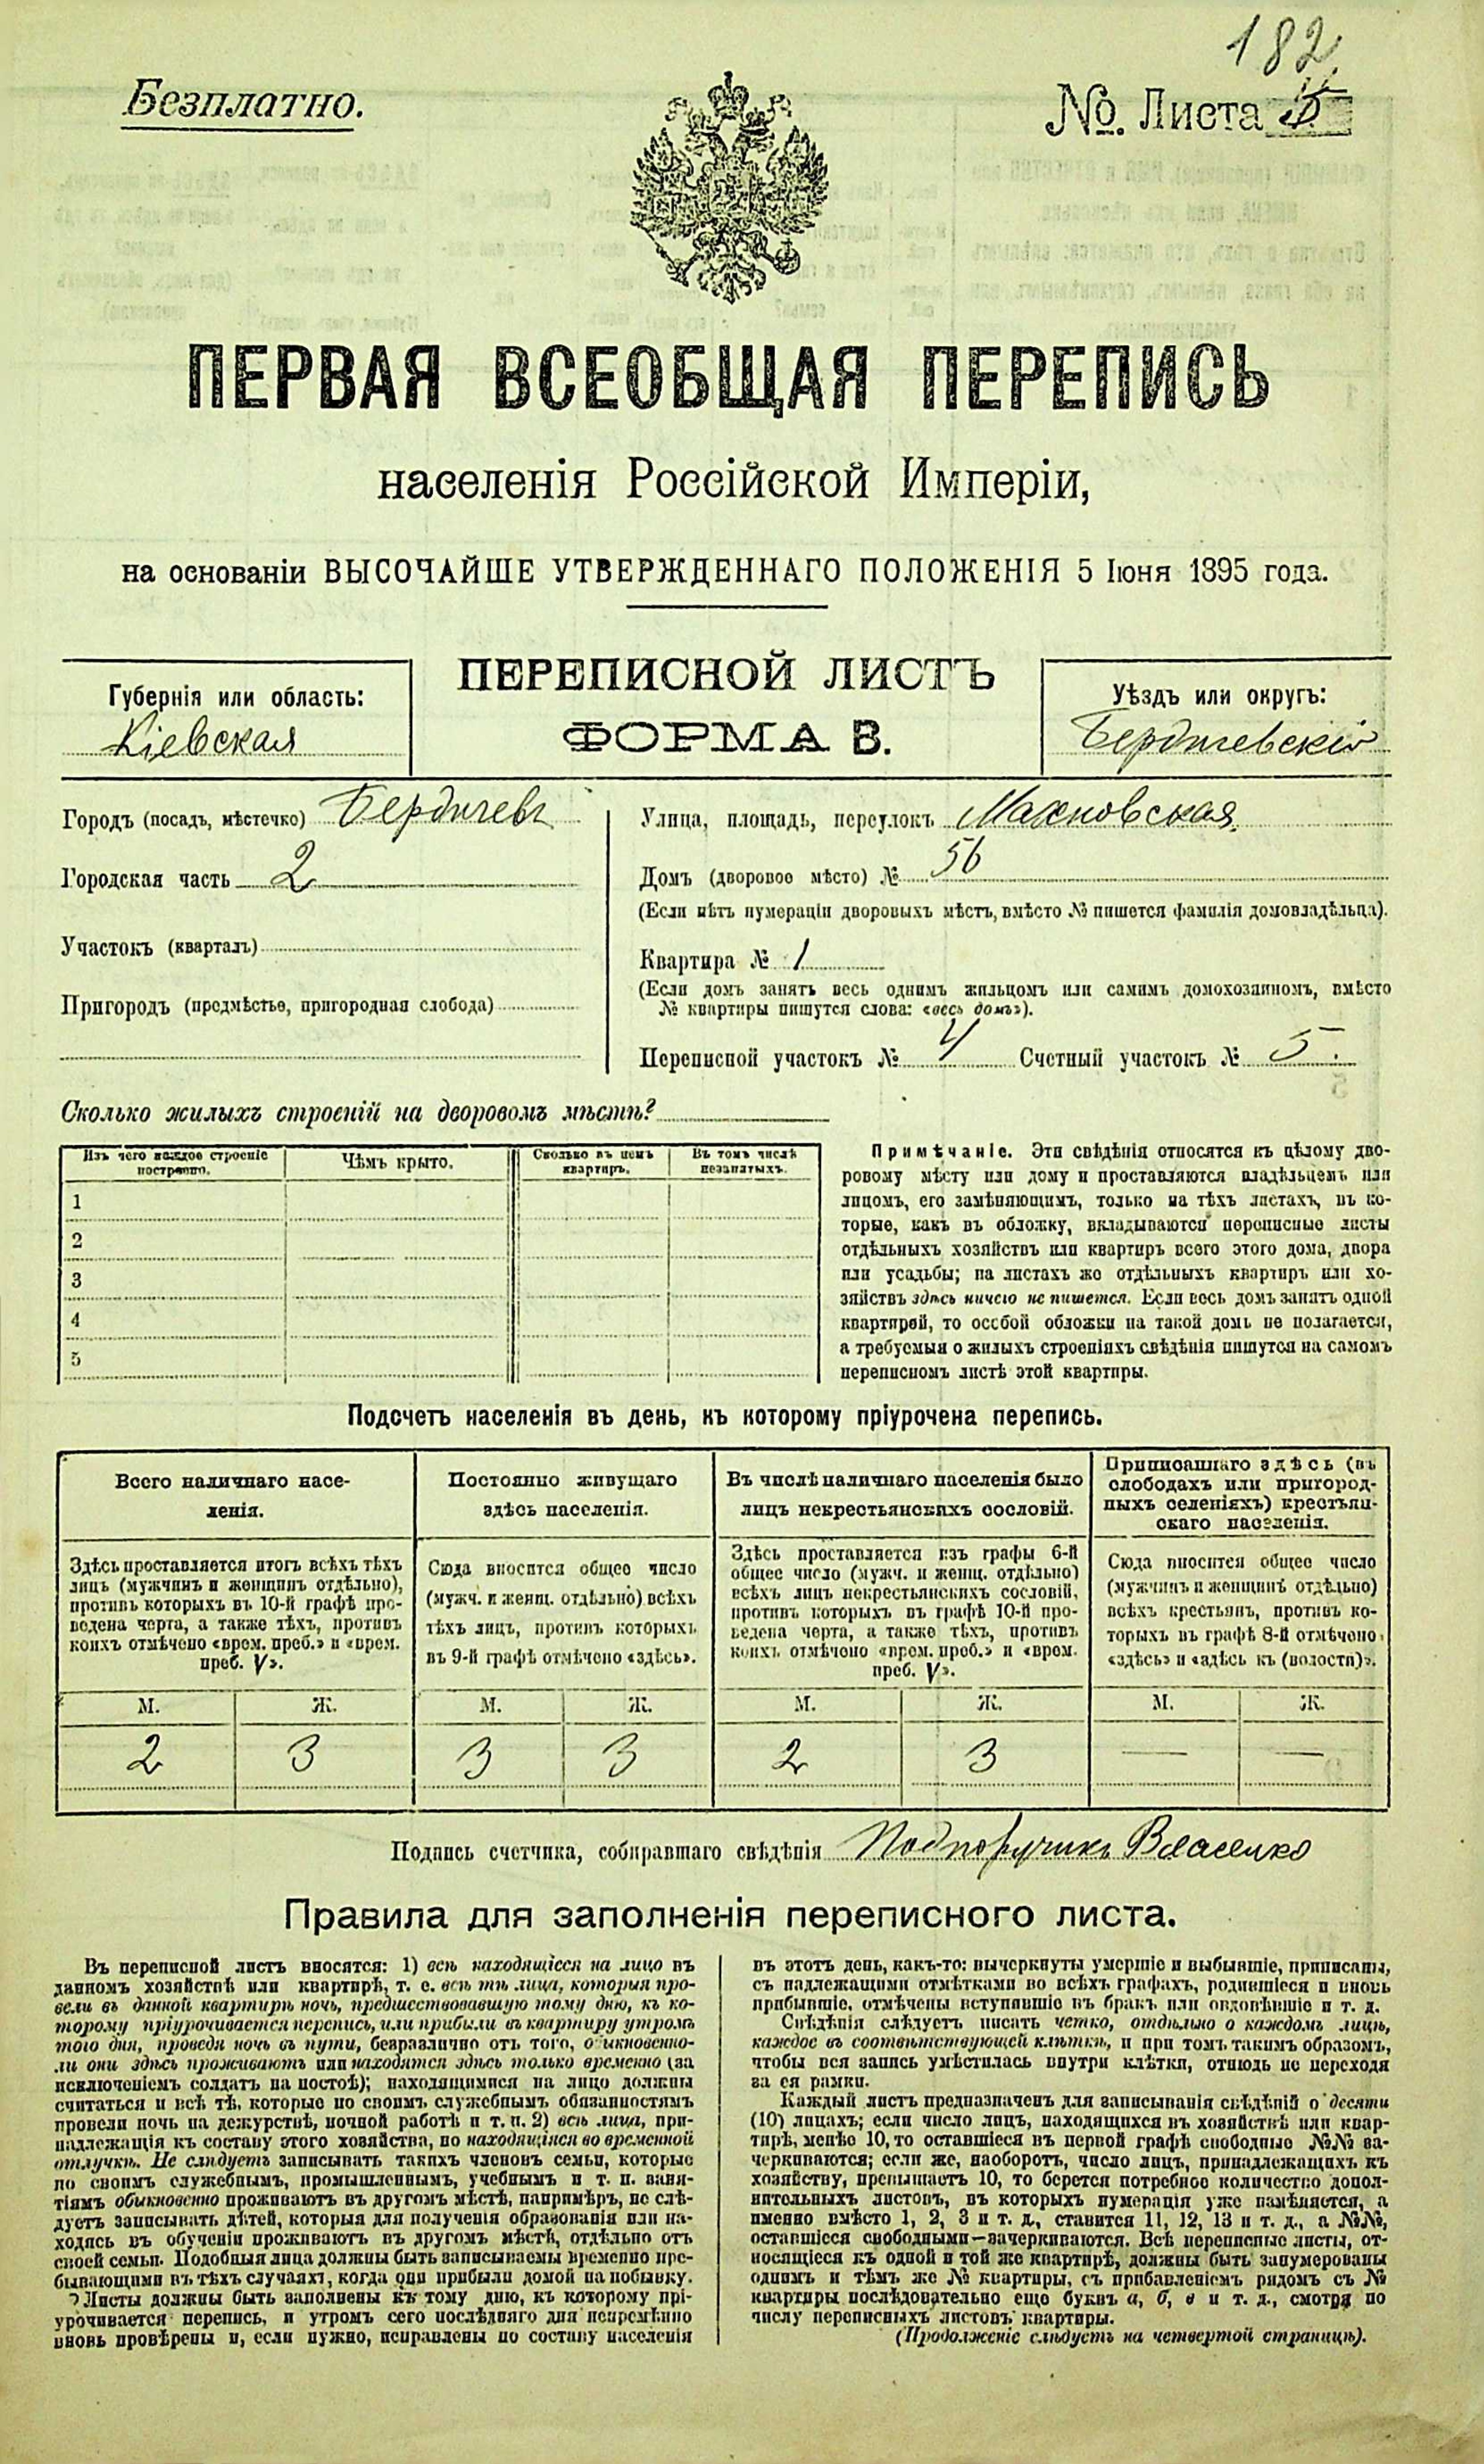 182
Безплатно.
№. Листа 5
ПЕРВАЯ ВСЕОБЩАЯ ПЕРЕПИСЬ
населенія Россійской Имперіи,
на основаніи ВЫСОЧАЙШЕ УТВЕРЖДЕННАГО ПОЛОЖЕНІЯ 5 Іюня 1895 года.
ПЕРЕПИСНОЙ ЛИСТЪ
ФОРМА В.
Губернія или область:
Кіевская
Уѣздъ или округъ:
Бердичевскій
Городъ (посадъ, мѣстечко) Бердичевъ
Городская часть 2
Участокъ (кварталъ)
Пригородъ (предмѣстье, пригородная слобода)
Улица, площадь, переулокъ Махновская
Домъ (дворовое мѣсто) № 56
(Если нѣтъ нумераціи дворовыхъ мѣстъ, вмѣсто № пишется фамилія домовладѣльца).
Квартира № 1
(Если домъ занятъ весь однимъ жильцомъ или самимъ домохозяиномъ, вмѣсто
№ квартиры пишутся слова: «весь домъ»).
Переписной участокъ № 4 Счетный участокъ № 5.
Сколько жилыхъ строеній на дворовомъ мѣстѣ?
Изъ чего каждое строеніе
построено.
Чѣмъ крыто.
Сколько въ немъ
квартиръ.
Въ томъ числѣ
незанятыхъ.
1
2
3
4
5
Примѣчаніе. Эти свѣдѣнія относятся къ цѣлому дво-
ровому мѣсту или дому и проставляются владѣльцемъ или
лицомъ, его замѣняющимъ, только на тѣхъ листахъ, въ ко-
торые, какъ въ обложку, вкладываются переписные листы
отдѣльныхъ хозяйствъ или квартиръ всего этого дома, двора
или усадьбы; на листахъ же отдѣльныхъ квартиръ или хо-
зяйствъ здѣсь ничего не пишется. Если весь домъ занятъ одной
квартирой, то особой обложки на такой домъ не полагается,
а требуемыя о жилыхъ строеніяхъ свѣдѣнія пишутся на самомъ
переписномъ листѣ этой квартиры.
Подсчетъ населенія въ день, къ которому пріурочена перепись.
Всего наличнаго насе-
ленія.
Здѣсь проставляется итогъ всѣхъ тѣхъ
лицъ (мужчинъ и женщинъ отдѣльно),
противъ которыхъ въ 10-й графѣ про-
ведена черта, а также тѣхъ, противъ
коихъ отмѣчено «врем. преб.» и «врем.
преб. V».
М. Ж.
2 3
Постоянно живущаго
здѣсь населенія.
Сюда вносится общее число
(мужч. и женщ. отдѣльно) всѣхъ
тѣхъ лицъ, противъ которыхъ
въ 9-й графѣ отмѣчено «здѣсь».
М. Ж.
3 3
Въ числѣ наличнаго населенія было
лицъ некрестьянскихъ сословій.
Здѣсь проставляется изъ графы 6-й
общее число (мужч. и женщ. отдѣльно)
всѣхъ лицъ некрестьянскихъ сословій,
противъ которыхъ въ графѣ 10-й про-
ведена черта, а также тѣхъ, противъ
коихъ отмѣчено «врем. преб.» и «врем.
преб. V».
М. Ж.
2 3
Приписаннаго здѣсь (въ
слободахъ или пригород-
ныхъ селеніяхъ) крестьян-
скаго населенія.
Сюда вносится общее число
(мужчинъ и женщинъ отдѣльно)
всѣхъ крестьянъ, противъ ко-
торыхъ въ графѣ 8-й отмѣчено
«здѣсь» и «здѣсь къ (волости)».
М. Ж.
— —
Подпись счетчика, собиравшаго свѣдѣнія Подпоручикъ Власенко
Правила для заполненія переписного листа.
Въ переписной листъ вносятся: 1) всѣ находящіеся на лицо въ
данномъ хозяйствѣ или квартирѣ, т. е. всѣ тѣ лица, которыя про-
вели въ данной квартирѣ ночь, предшествовавшую тому дню, къ ко-
торому пріурочивается перепись, или прибыли въ квартиру утромъ
того дня, проведя ночь въ пути, безразлично отъ того, обыкновенно-
ли они здѣсь проживаютъ или находятся здѣсь только временно (за
исключеніемъ солдатъ на постоѣ); находящимися на лицо должны
считаться и всѣ тѣ, которые по своимъ служебнымъ обязанностямъ
провели ночь на дежурствѣ, ночной работѣ и т. п. 2) всѣ лица, при-
надлежащія къ составу этого хозяйства, но находящіяся во временной
отлучкѣ. Не слѣдуетъ записывать такихъ членовъ семьи, которые
по своимъ служебнымъ, промышленнымъ, учебнымъ и т. п. заня-
тіямъ обыкновенно проживаютъ въ другомъ мѣстѣ, напримѣръ, не слѣ-
дуетъ записывать дѣтей, которыя для полученія образованія или на-
ходясь въ обученіи проживаютъ въ другомъ мѣстѣ, отдѣльно отъ
своей семьи. Подобныя лица должны быть записываемы временно пре-
бывающими въ тѣхъ случаяхъ, когда они прибыли домой на побывку.
Листы должны быть заполнены къ тому дню, къ которому прі-
урочивается перепись, и утромъ сего послѣдняго дня непремѣнно
вновь провѣрены и, если нужно, исправлены по составу населенія
въ этотъ день, какъ-то: вычеркнуты умершіе и выбывшіе, приписаны,
съ надлежащими отмѣтками во всѣхъ графахъ, родившіеся и вновь
прибывшіе, отмѣчены вступившіе въ бракъ или овдовѣвшіе и т. д.
Свѣдѣнія слѣдуетъ писать четко, отдѣльно о каждомъ лицѣ,
каждое въ соотвѣтствующей клѣткѣ, и при томъ такимъ образомъ,
чтобы вся запись умѣстилась внутри клѣтки, отнюдь не переходя
за ея рамки.
Каждый листъ предназначенъ для записыванія свѣдѣній о десяти
(10) лицахъ; если число лицъ, находящихся въ хозяйствѣ или квар-
тирѣ, менѣе 10, то оставшіеся въ первой графѣ свободные №№ за-
черкиваются; если же, наоборотъ, число лицъ, принадлежащихъ къ
хозяйству, превышаетъ 10, то берется потребное количество допол-
нительныхъ листовъ, въ которыхъ нумерація уже измѣняется, а
именно вмѣсто 1, 2, 3 и т. д., ставится 11, 12, 13 и т. д., а №№,
оставшіеся свободными—зачеркиваются. Всѣ переписные листы, от-
носящіеся къ одной и той же квартирѣ, должны быть занумерованы
однимъ и тѣмъ же № квартиры, съ прибавленіемъ рядомъ съ №
квартиры послѣдовательно еще буквъ а, б, в и т. д., смотря по
числу переписныхъ листовъ квартиры.
(Продолженіе слѣдуетъ на четвертой страницѣ).